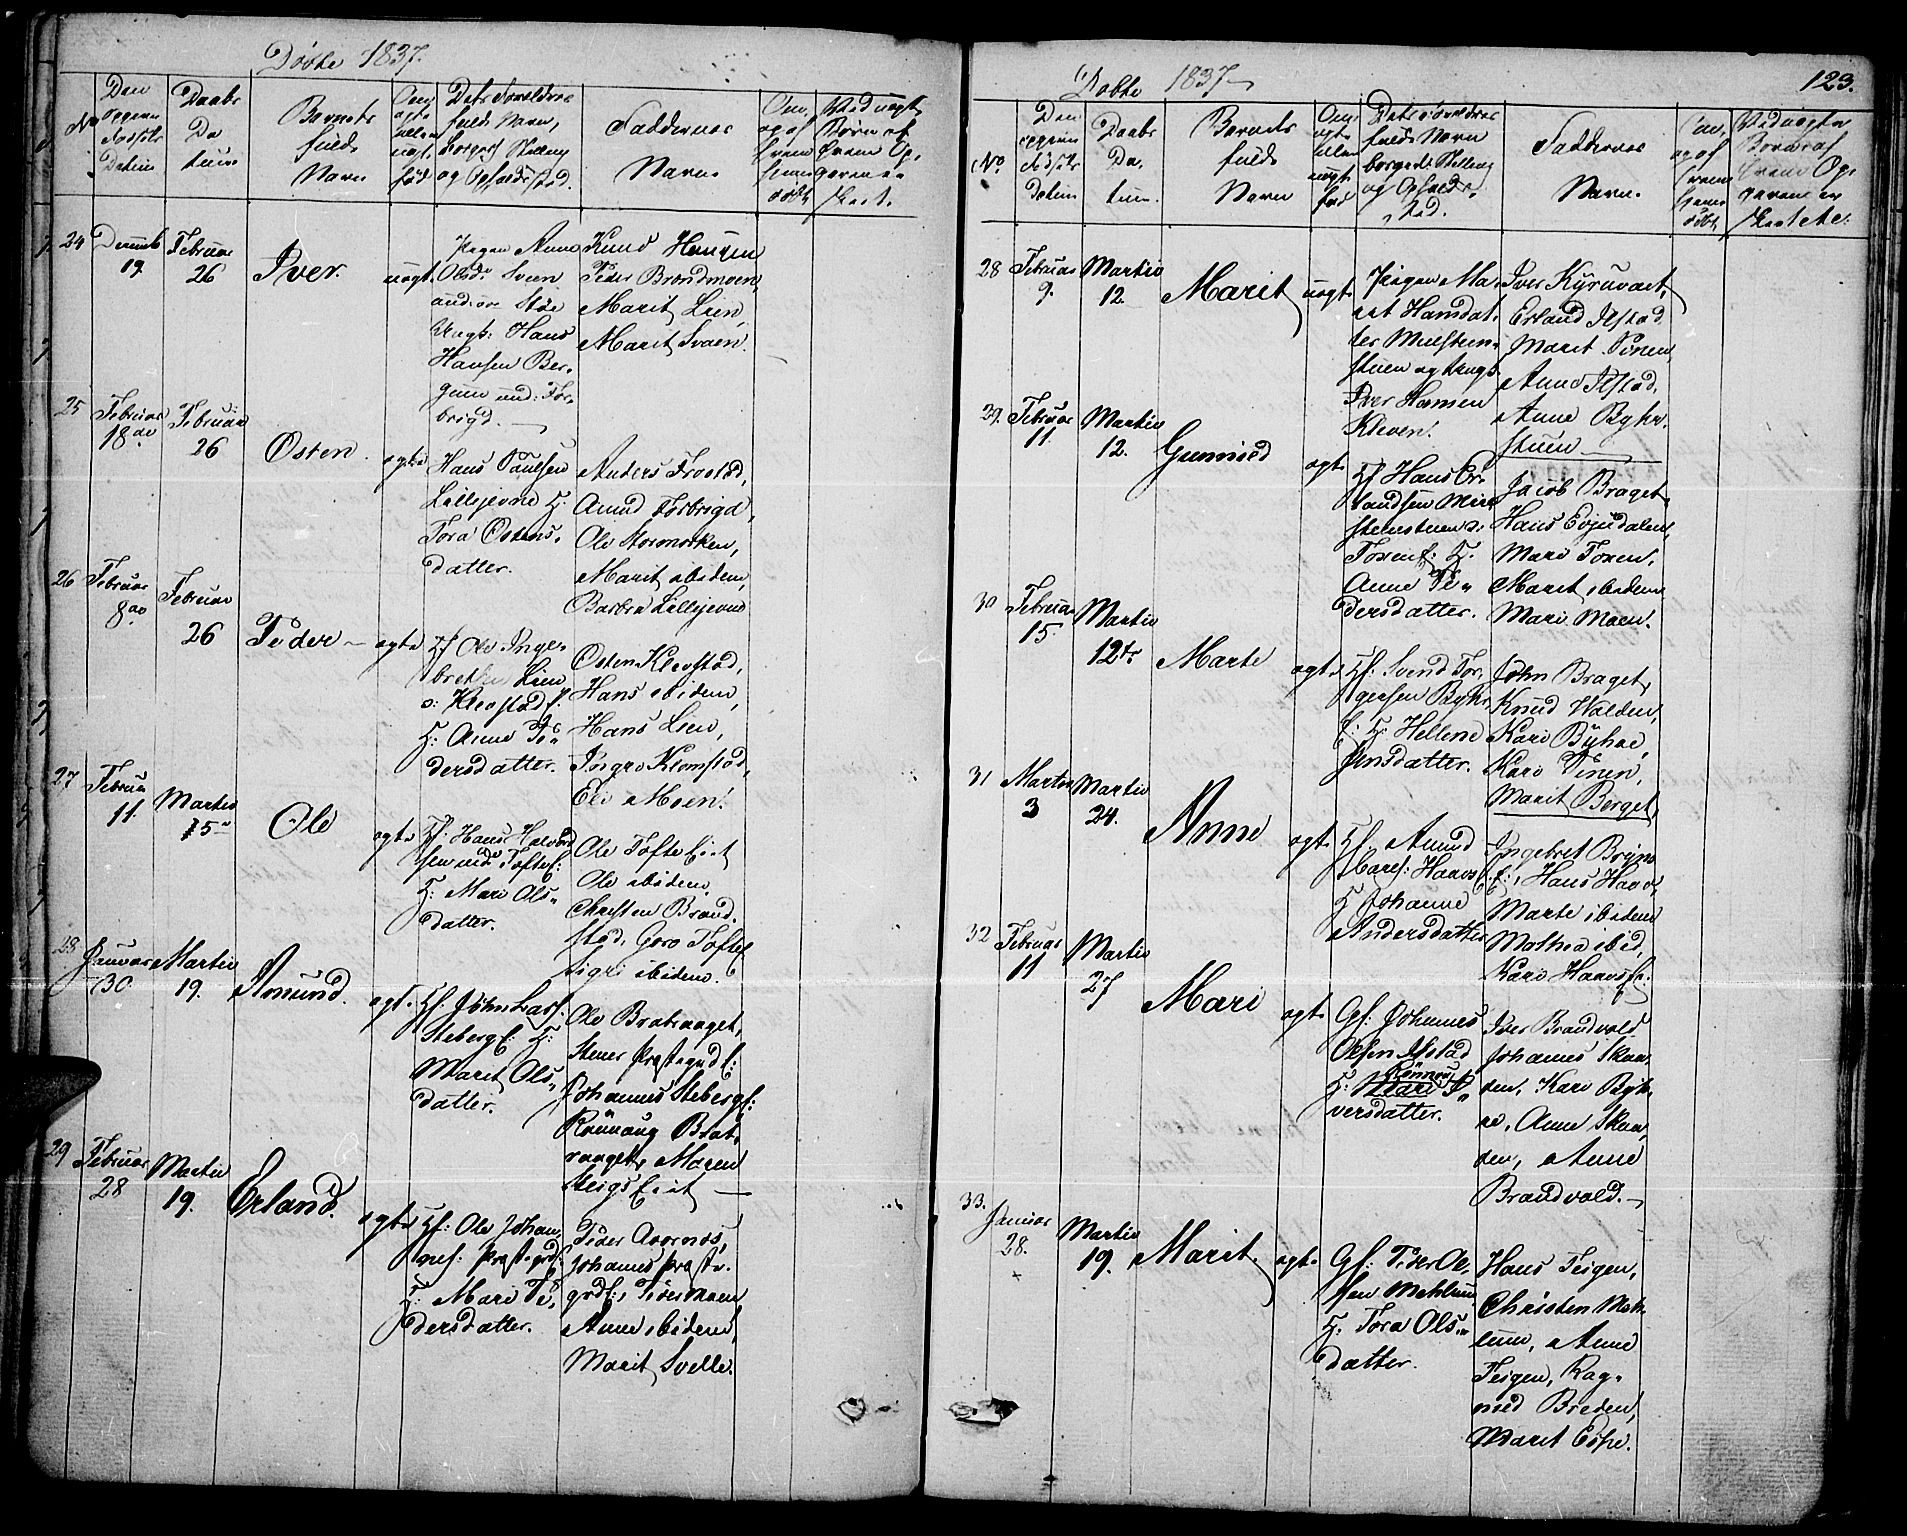 Døbte 1837.
No
Den opgivne Fødsels Datum
Daabs Da tum
Barnets fulde Navn
Om ægte eller uægt. fød
Dets Forældres fulde Navn, borgerl Stilling og Opholdssted.
Faddernes Navne
24 Decemb 19. Februar 26 Iver. uægt.
Pigen Anne
Olsdr Sveen
Ungk: Hans
Hansen Ber-
gum und: For-
brigd.
Knud Haugen
Peder Brandmoen,
Marit Lien,
Marit Svaen.
25 Februar 18de Februar 26 Osten. ægte
Hans Poulsen
Lillejevne H:
Tora Ostens-
datter.
Anders Frostad,
Amud Forbrigd,
Ole Stormorken,
Marit ibidem,
Barbra Lillejevne
26 Februar 8de Februar 26 Peder ægte
Hf Ole Inge-
bretsen Lien
o: Klevstad f:
H: Anne Pe-
dersdatter.
Osten Klevstad,
Hans ibidem,
Hans Lien,
Ingro Klomstad,
Eli Moen.
27 Februar 11. Martii 15de Ole ægte
Hf: Hans Halvor
sen Toftef:
H: Mari Ols-
datter.
Ole Tofte Eiet
Ole ibidem.
Christen Brand-
stad, Goro Toftef
Sigri ibidem.
28 Januar 30. Martii 19. Amund. ægt.
Hf. John Larf.
Stebergf: H:
Marit Ols-
datter.
Ole Bratvanget,
Stener Præstegrdf:
Johannes Stebergf:
Rønnaug Brat-
vanget, Maren
Steigs Eiet
29 Februar 28 Martii 19. Erland. ægte
Hf: Ole Johan
nesf: Præstegrdf:
H: Mari Pe-
dersdatter.
Peder Aaarnæs,
Johannes Præste-
grdf:, Peder Moen
Anne ibidem,
Marit Svelle.
Døbte 1837
123.
No
Den opgivne Fødsels Datum
Daabs Da- tum.
Barnets fulde Navn
Om ægte eller uægt. fød
Dets Forældres fulde Navn borgerl Stilling og Opholds- sted.
Faddernes Navn.
28 Februar 9. Martii 12. Marit uægt.
Pigen Ma-
rit Hansdat-
ter Mælstens-
stuen og Ungk
Iver Hansen
Kleven.
Iver Kyruvart,
Erland Ilstad
Marit Vinen,
Anne Ilstad,
Anne Byhr-
stuen
29. Februar 11. Martii 12. Gunnild ægt.
Hf Hans Er-
landsen Mæl-
stenstuen o:
Toxenf: H.
Anne Pe-
dersdatter.
Jacob Braget
Hans Evjudalen,
Mari Toxen,
Marit ibidem
Mari Moen.
30 Februar 15. Martii 12te Marte ægte
Hf: Svend Tor-
gersen Byhr
f: H: Helene
Jensdatter.
John Braget,
Knud Halden,
Kari Byhre,
Kari Vinen,
Marit Berget,
31 Martii 3 Martii 24. Anne ægt.
Hf. Amund
Larsf: Haavf
H Johanne
Andersdatter
Ingebret Bryn
f:, Hans Haav,
Marte ibidem
Mathea ibid,
Kari Haavsf:
32 Februar 11 Martii 27 Mari ægt.
Gf: Johannes
Olsen Ilstad
H: Rønnau I-
versdatter.
Iver Brandvold
Johannes Skaa-
den, Kari Byh-
re, Anne Skaa-
den, Anne
Brandvold.
33. Januar 28. Martii 19. Marit. ægt.
Gf: Peder Ol-
sen Mehlum
H. Tora Ols-
datter.
Hans Teigen,
Christen Meh-
lum, Anne
Teigen, Rag-
nild Breden,
Marit Espe.